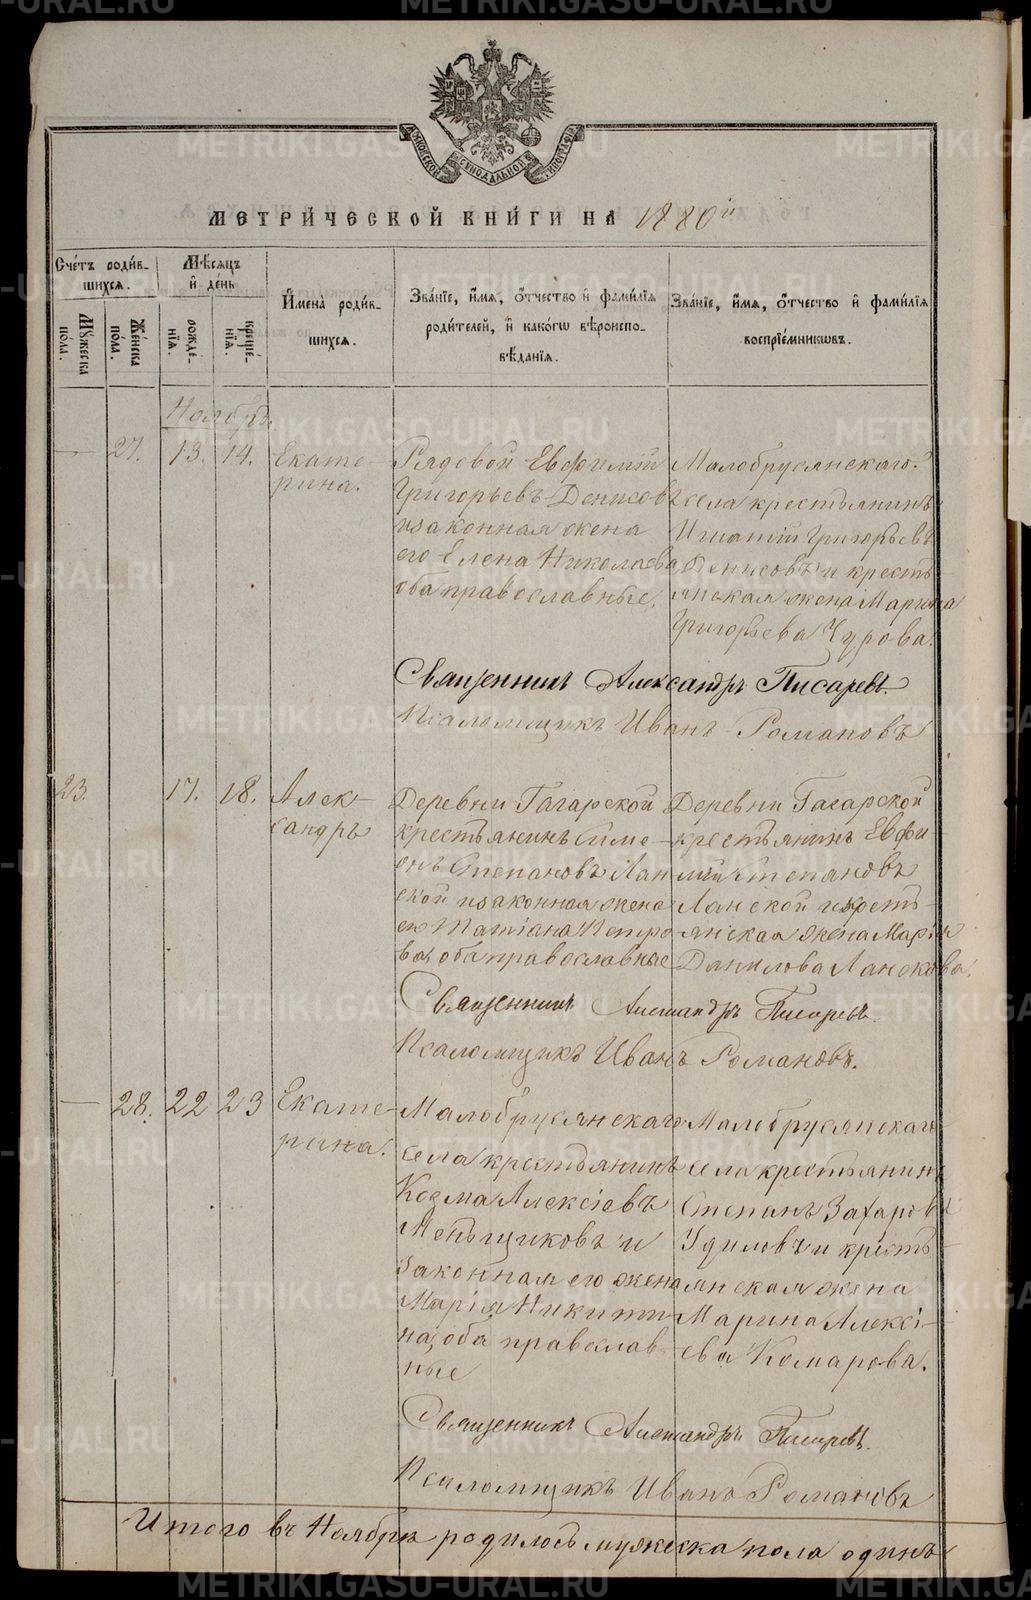 МОСКОВСКОЙ СѴНОДАЛЬНОЙ ТИПОГРАФІИ
МЕТРИ́ЧЕСКОЙ КНИ́ГИ НА 1880й
Сче́тъ роди́в-
шихся.
Мѣ́сяцъ
и҆ де́нь
И҆мена̀ роди́в-
шихся.
Зва́нїе, и҆́мя, ѻ҆́тчество и҆ фами́лїя
роди́телей, и҆ како́гѡ вѣроиспо-
вѣ́данїя.
Зва́нїе, и҆́мя, ѻ҆́тчество и҆ фами́лїя
воспрїе́мникѡвъ.
Мꙋ́жеска
по́ла.
Же́нска
по́ла.
рожде́-
нїя.
креще́-
нїя.
Ноябрь
— 27. 13. 14.
Екате-
рина.
Рядовой Евфимій
Григорьевъ Денисовъ
и законная жена
его Елена Николаева
оба православные.
Малобрусянскаго
села крестьянинъ
Игнатій Григорьевъ
Денисовъ и кресть
янская жена Марина
Григорьева Чурова.
Священникъ Александръ Писаревъ.
Псаломщикъ Иванъ Романовъ
23. 17. 18.
Алек-
сандръ
Деревни Гагарской
крестьянинъ Симе-
онъ Степановъ Лан
ской и законная жена
его Татіана Петро
ва, оба православные
Деревни Гагарской
крестьянинъ Евфи
мій Степановъ
Ланской и кресть-
янская жена Марія
Данилова Ланскова.
Священникъ Александръ Писаревъ.
Псаломщикъ Иванъ Романовъ.
— 28. 22 23
Екате-
рина.
Малобрусянскаго
села крестьянинъ
Козма Алексіевъ
Меньщиковъ и
законная его жена
Марія Никити-
на, оба православ-
ные
Малобрусянскаго
села крестьянинъ
Степанъ Захаровъ
Удиловъ и кресть-
янская жена
Марина Алексі-
ева Комарова.
Священникъ Александръ Писаревъ.
Псаломщикъ Иванъ Романовъ
Итого въ Ноябрѣ родилось мужеска пола одинъ
METRIKI.GASO-URAL.RU